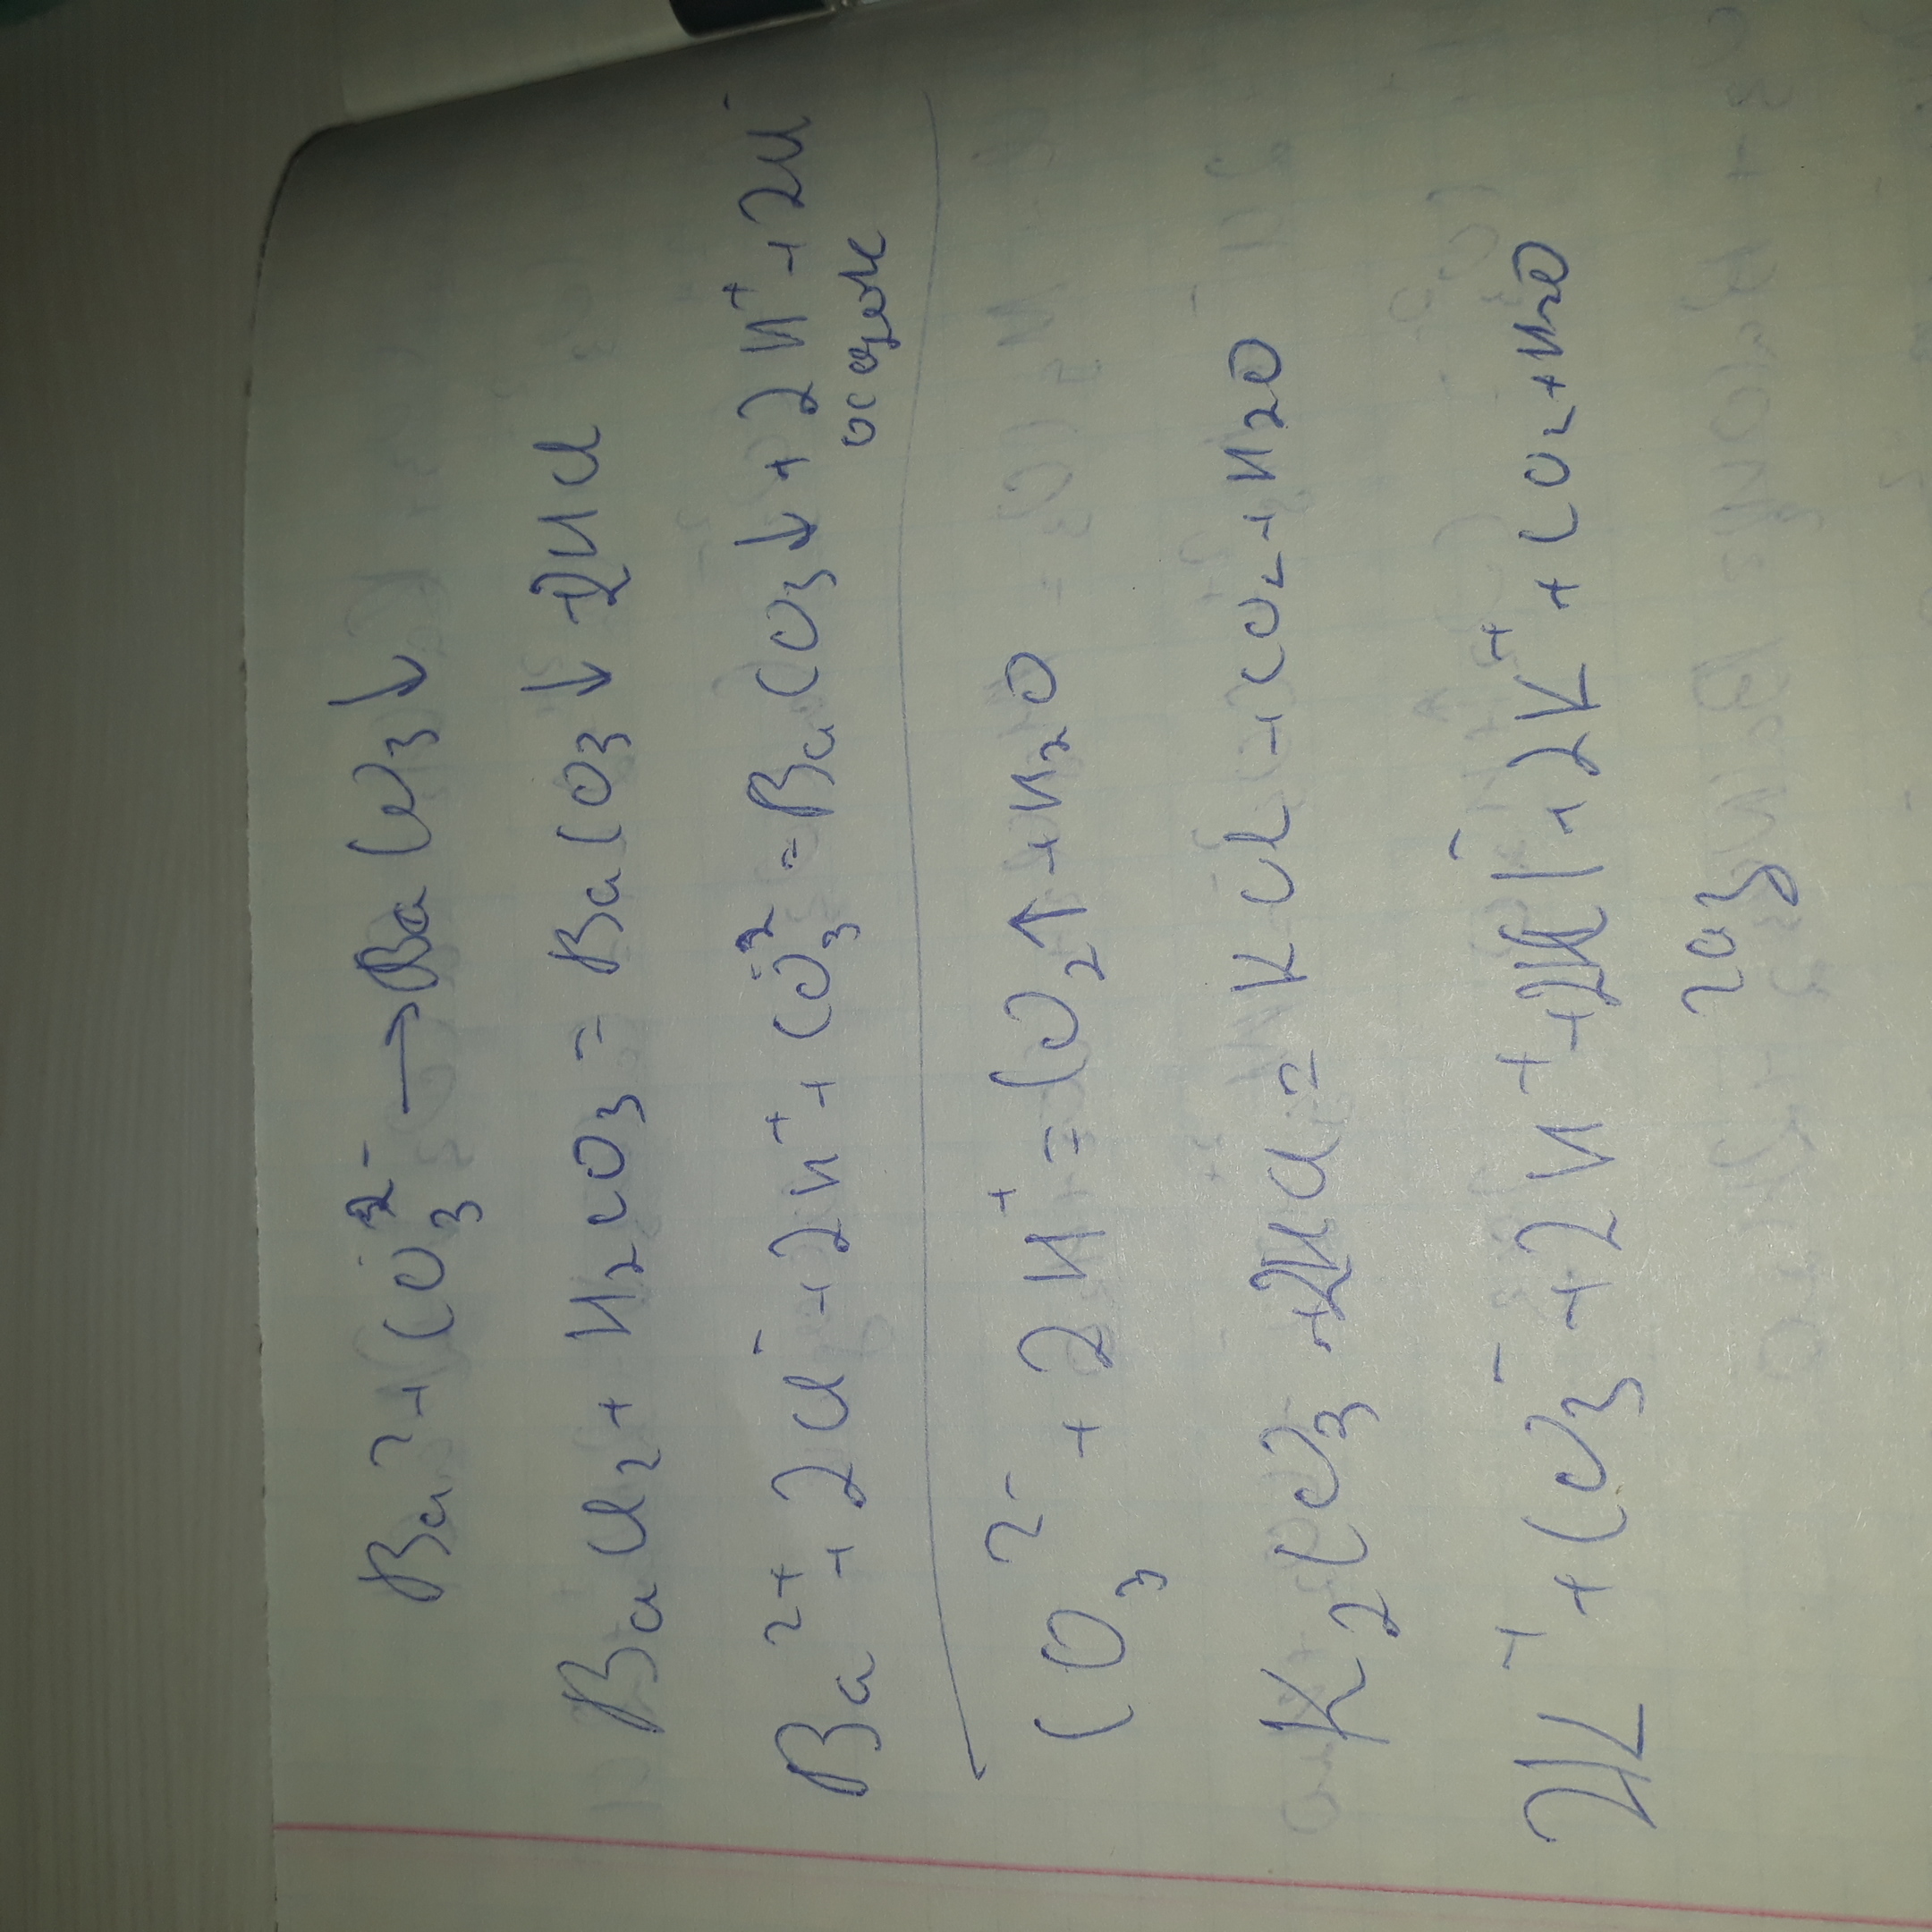 Ba²⁺ + CO₃²⁻ → BaCO₃↓
BaCl₂ + H₂CO₃ = BaCO₃↓ + 2HCl
Ba²⁺ + 2Cl⁻ + 2H⁺ + CO₃²⁻ = BaCO₃↓ + 2H⁺ + 2Cl⁻
осадок
CO₃²⁻ + 2H⁺ = CO₂↑ + H₂O
K₂CO₃ + 2HCl = KCl + CO₂ + H₂O
2K⁺ + CO₃⁻ + 2H⁺ + 2Cl⁻ + 2K⁺ + CO₂ + H₂O
газ